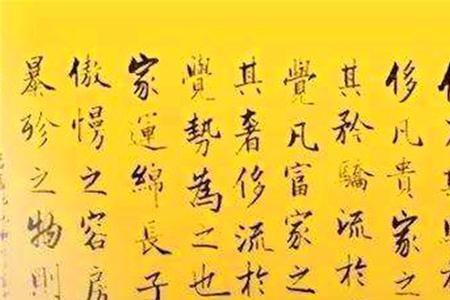 侈凡貴家之
其矜驕流於
覺凡富家之
其奢侈流於
覺勢為之也
家運綿長子
傲慢之容房
暴殄之物則